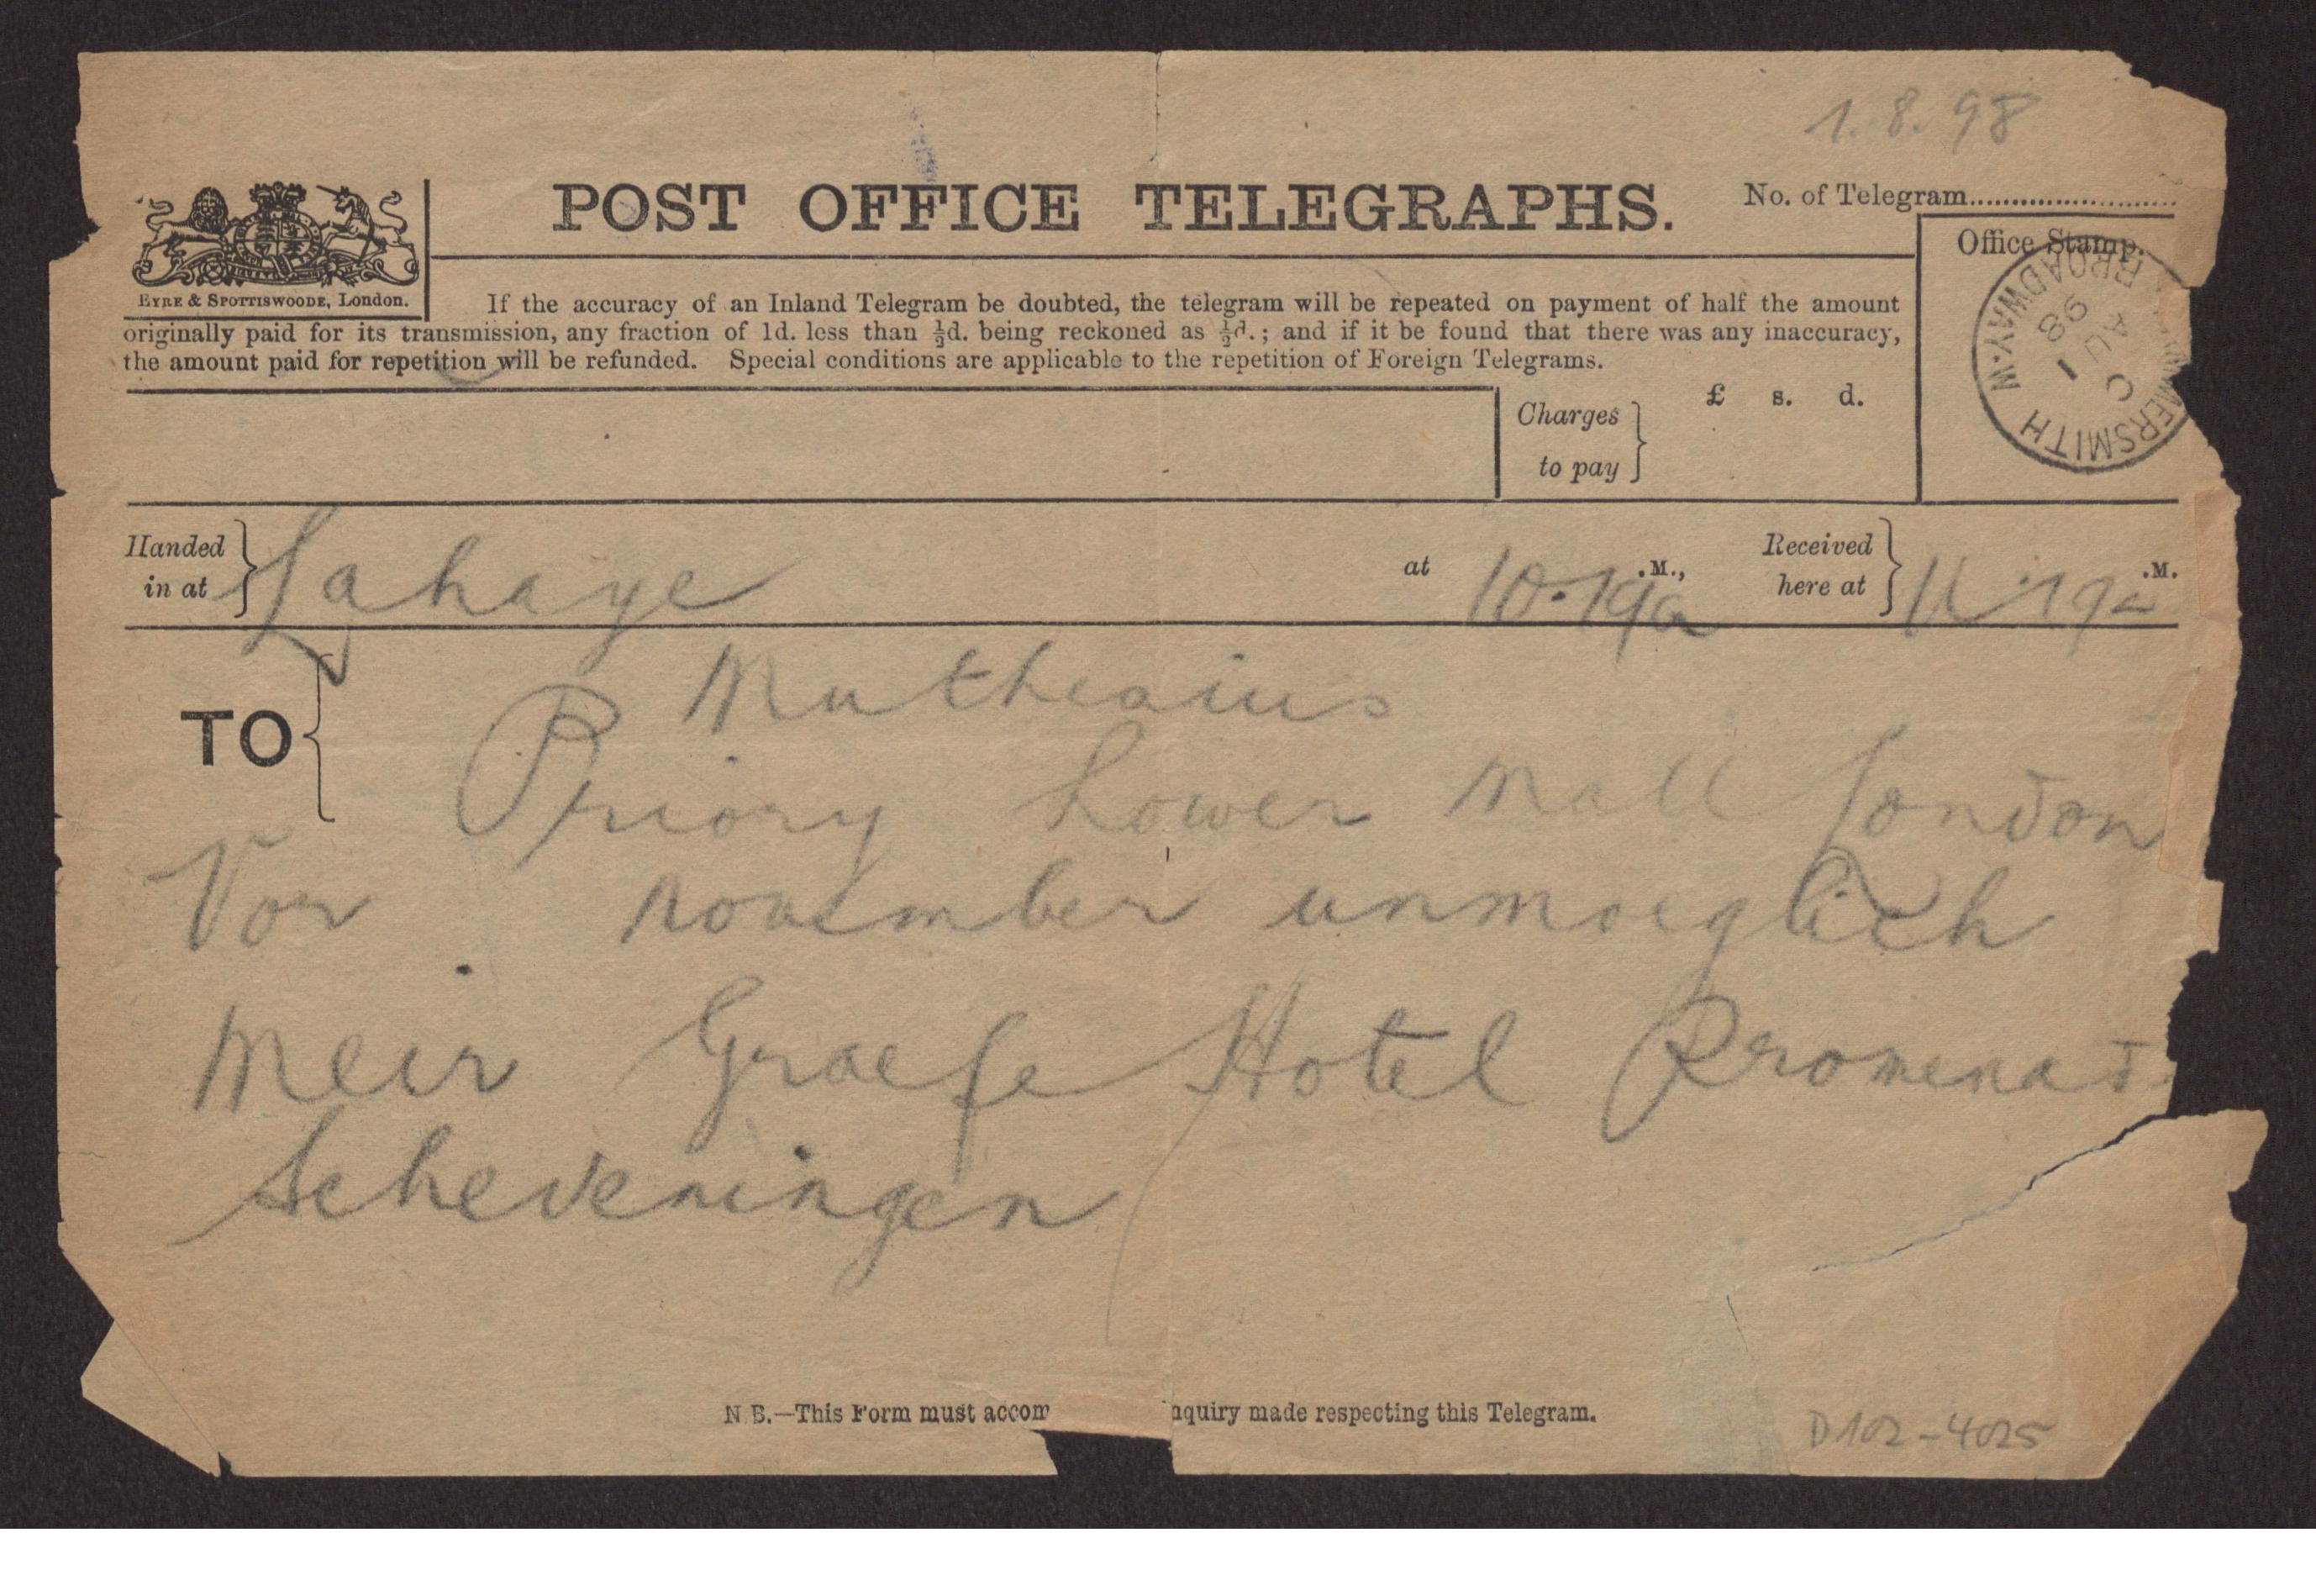 1.8.98
POST OFFICE TELEGRAPHS.
No. of Telegram........................
EYRE & SPOTTISWOODE, London.
Office Stamp.
HAMMERSMITH BROADWAY·W
C
AU 1
98
If the accuracy of an Inland Telegram be doubted, the telegram will be repeated on payment of half the amount
originally paid for its transmission, any fraction of 1d. less than ½d. being reckoned as ½d.; and if it be found that there was any inaccuracy,
the amount paid for repetition will be refunded. Special conditions are applicable to the repetition of Foreign Telegrams.
Charges to pay } £ s. d.
Handed in at } Lahaye at 10.19a .M., Received here at } 11.19a .M.
TO { Muthesius
Priory Lower Mall London
Vor November unmoeglich
Meir Graefe Hotel Promenad
Scheveningen
N.B.—This Form must accom nquiry made respecting this Telegram.
D102-4025